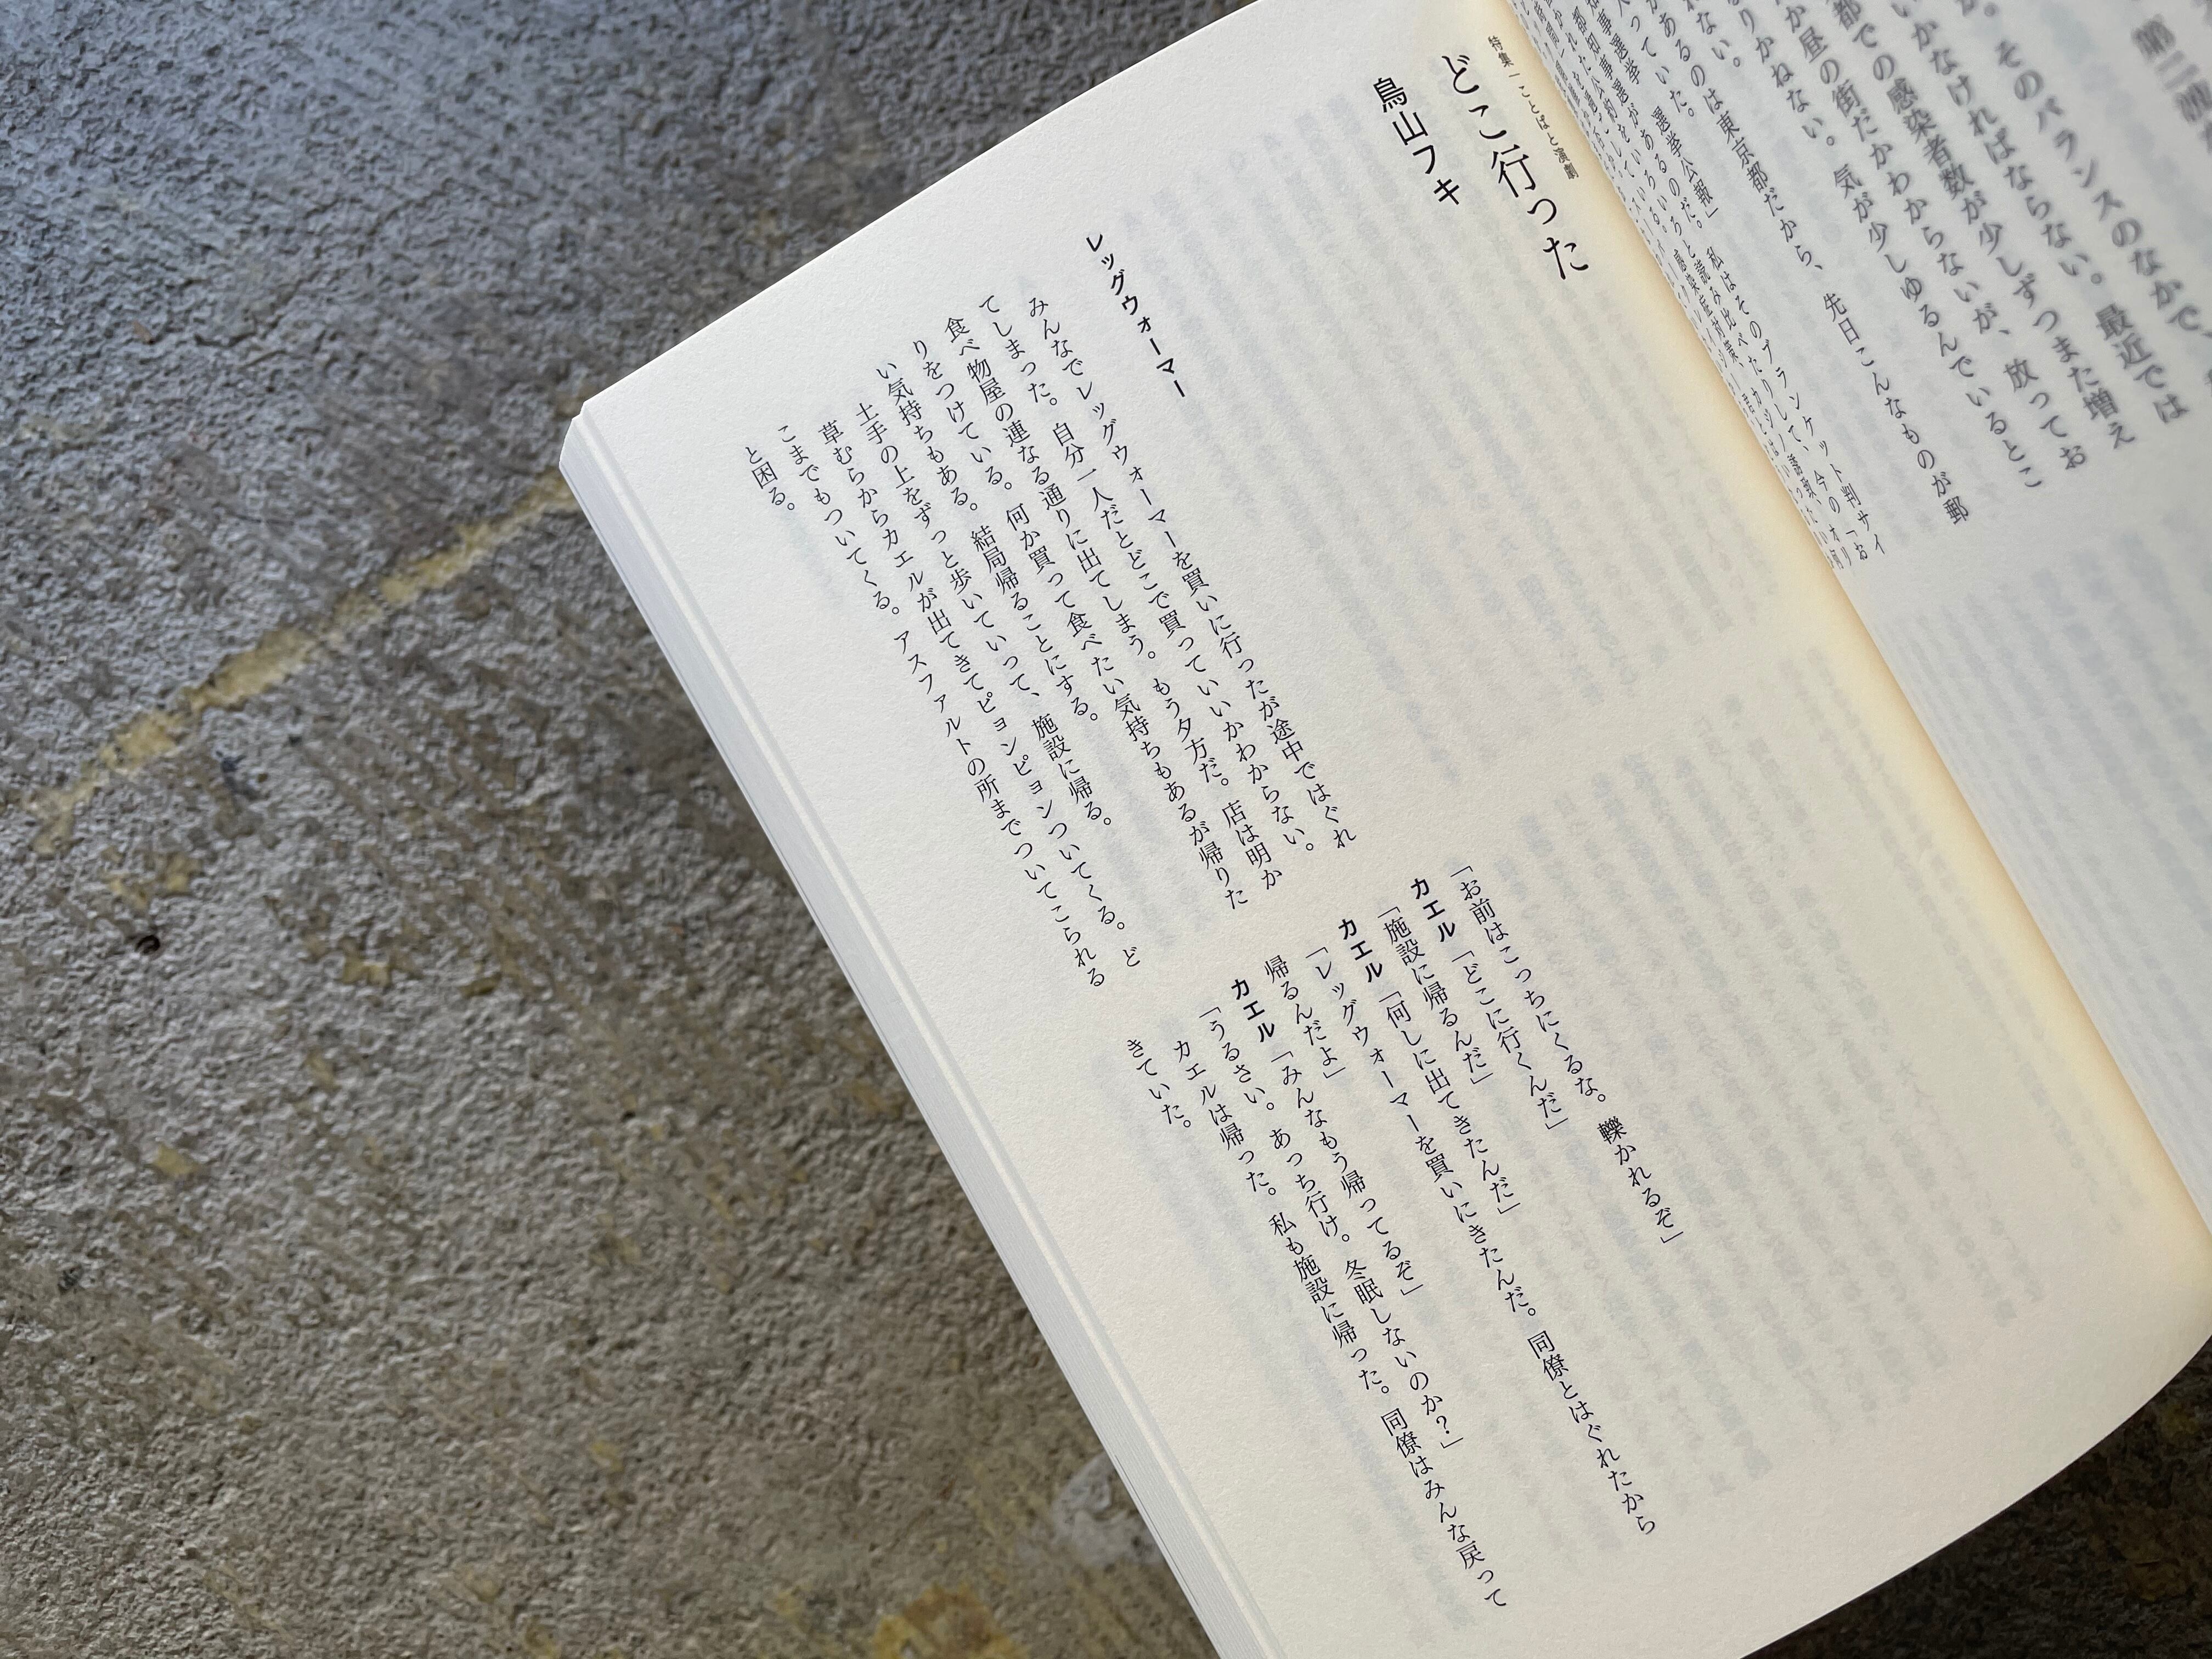 第二波
そのバランスのなかで、
いかなければならない。最近では
都での感染者数が少しずつまた増え
か昼の街だかわからないが、放ってお
りかねない。気が少しゆるんでいるとこ
ない。
があるのは東京都だから、先日こんなものが郵
っていた。
選挙公報」私はそのブランケット判サイ
特集一ことばと演劇
どこ行った
鳥山フキ
レッグウォーマー
みんなでレッグウォーマーを買いに行ったが途中ではぐれ
てしまった。自分一人だとどこで買っていいかわからない。
食べ物屋の連なる通りに出てしまう。もう夕方だ。店は明か
りをつけている。何か買って食べたい気持ちもあるが帰りた
い気持ちもある。結局帰ることにする。
土手の上をずっと歩いていって、施設に帰る。
草むらからカエルが出てきてピョンピョンついてくる。ど
こまでもついてくる。アスファルトの所までついてこられる
と困る。
「お前はこっちにくるな。轢かれるぞ」
カエル「どこに行くんだ」
「施設に帰るんだ」
カエル「何しに出てきたんだ」
「レッグウォーマーを買いにきたんだ。同僚とはぐれたから
帰るんだよ」
カエル「みんなもう帰ってるぞ」
「うるさい。あっち行け。冬眠しないのか？」
カエルは帰った。私も施設に帰った。同僚はみんな戻って
きていた。